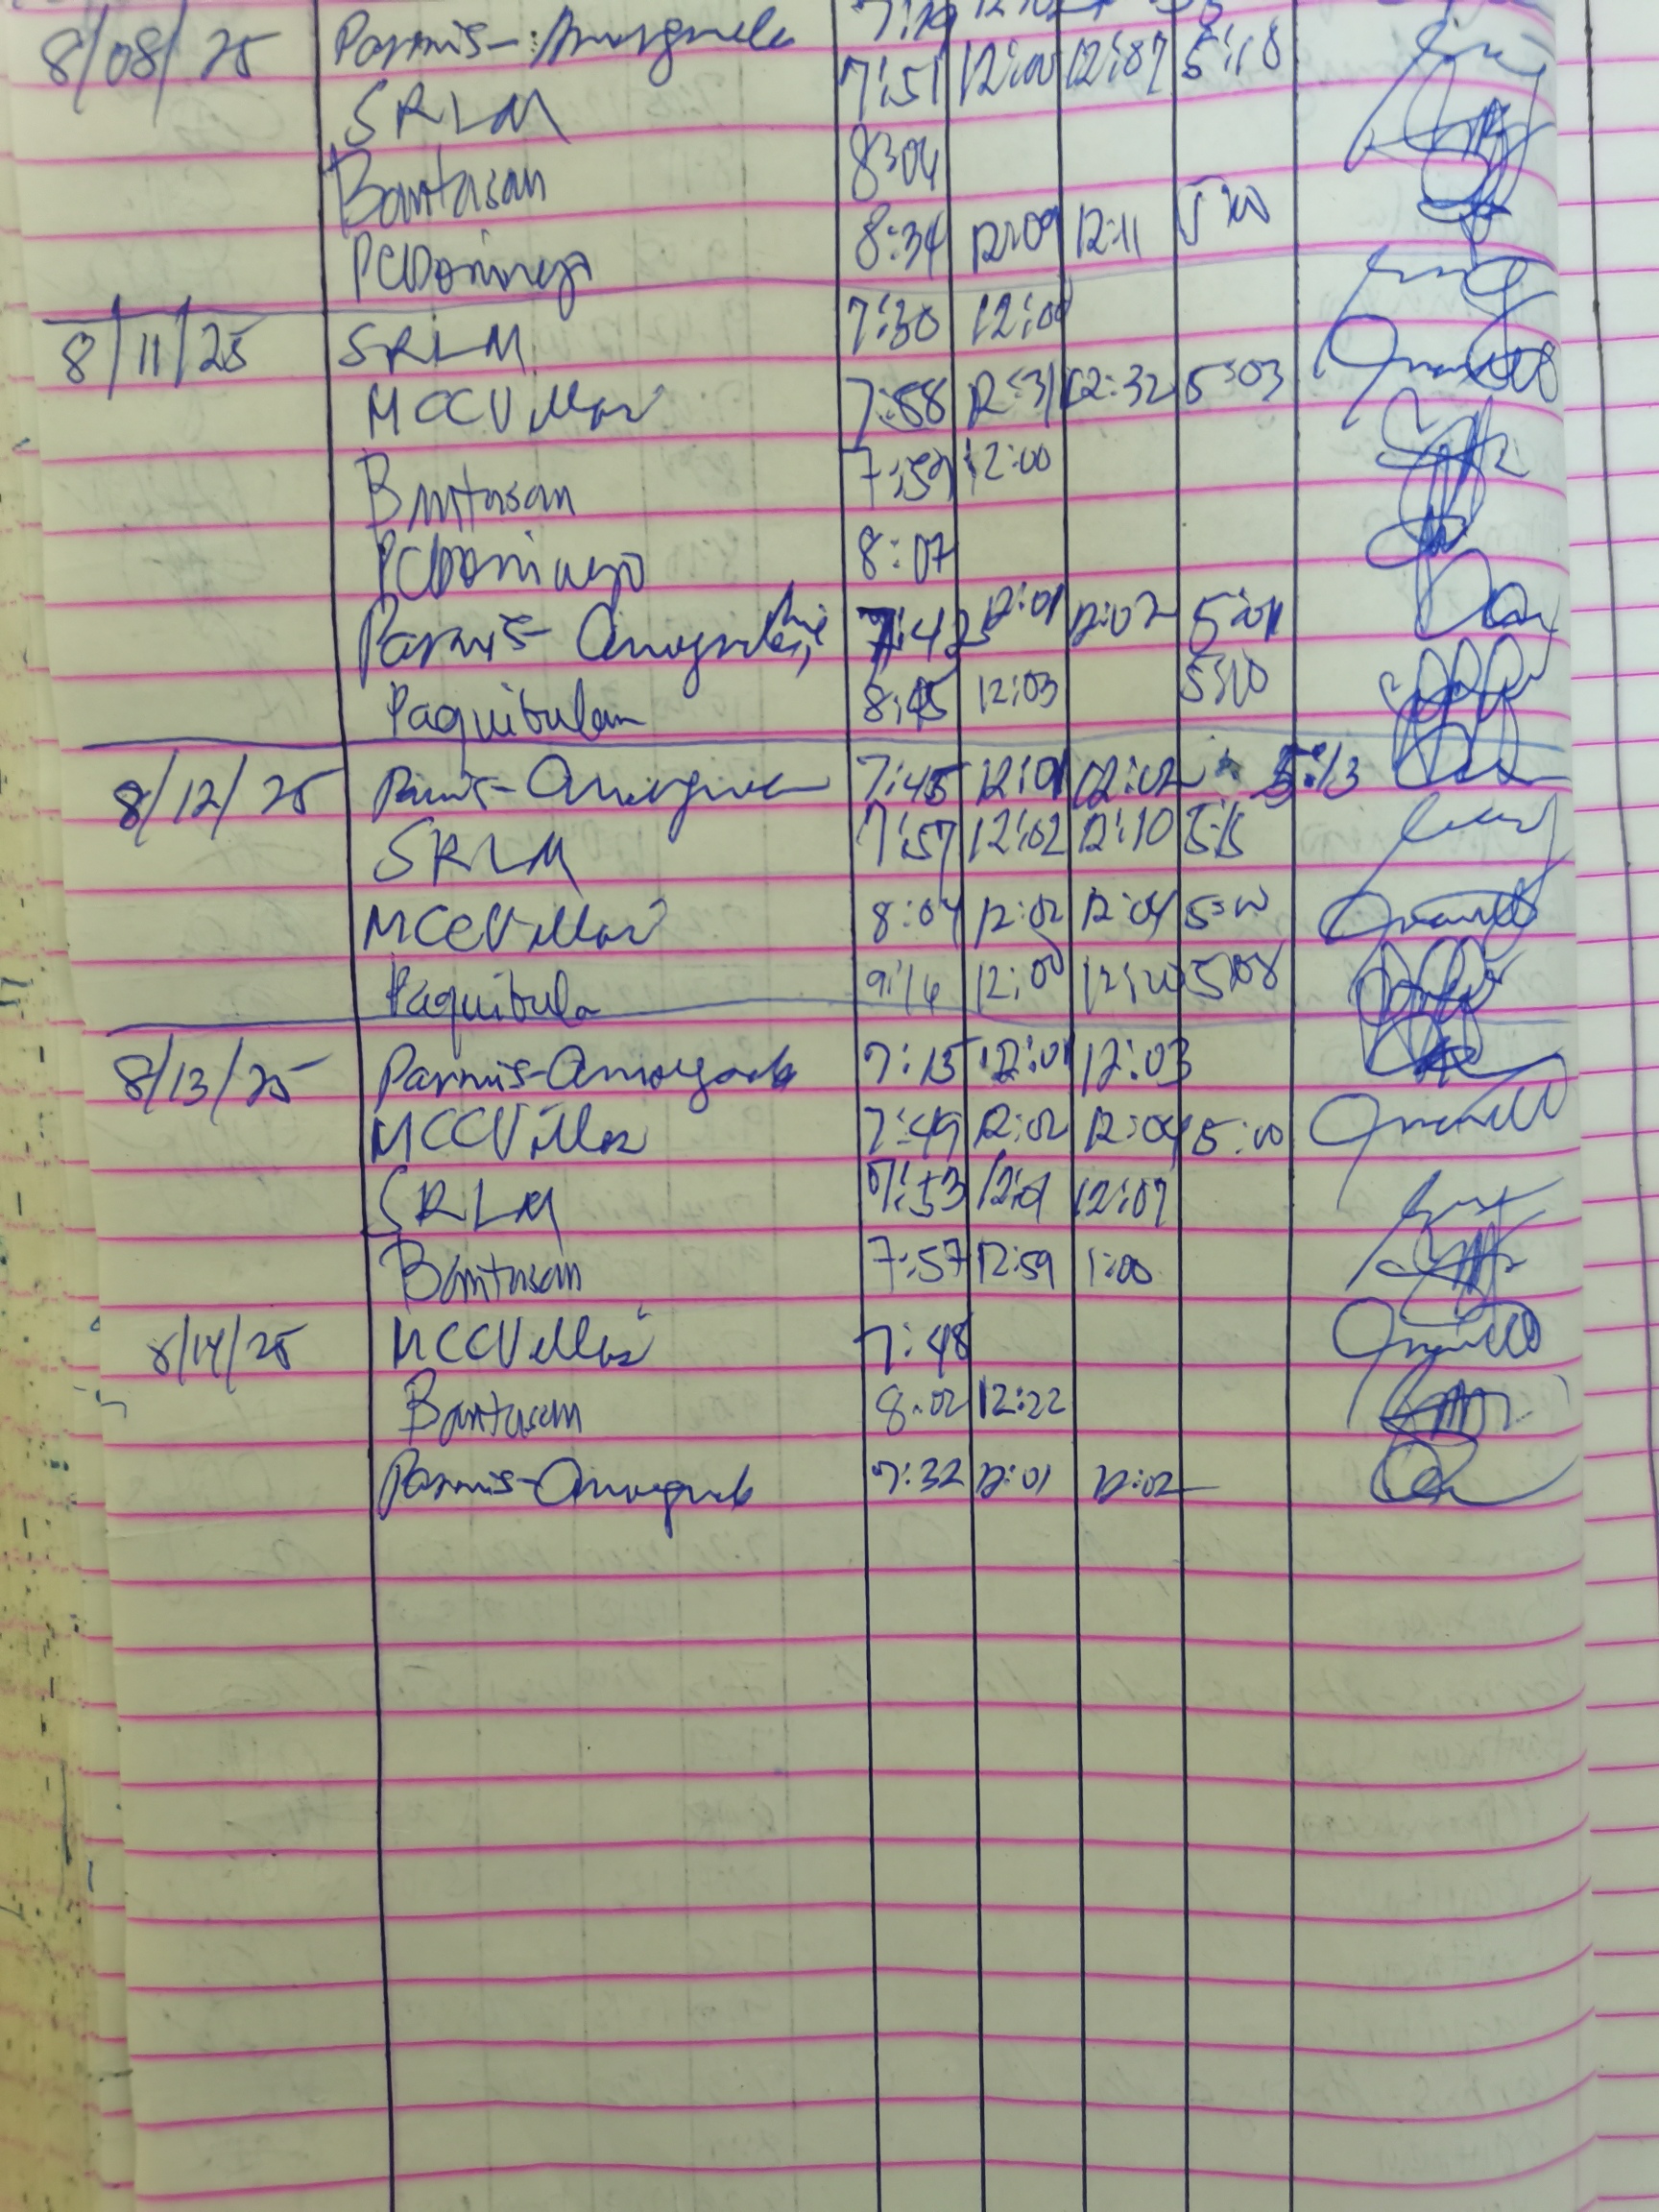 8/08/25 Parmis-
SRLM 7:51 12:00 12:07 5:18
Bantasan 8:04
PCDomingo 8:34 12:09 12:11 5:00
8/11/25 SRLM 7:30 12:00
MCCVillar 7:58 12:31 12:32 5:03
Bantasan 7:59 12:00
PCDomingo 8:07
Parmis- 7:42 12:01 12:02 5:01
Paquibulan 8:45 12:03 5:10
8/12/25 12:01 12:02 5:13
7:45
SRLM 7:57 12:02 12:10 5:15
MCCVillar 8:04 12:02 12:04 5:00
Paquibula 9:16 12:00 12:20 5:08
8/13/25 Parmis- 7:15 12:01 12:03
MCCVillar 7:49 12:02 12:04 5:00
SRLM 7:53 12:01 12:07
Bantasan 7:57 12:59 1:00
8/14/25 MCCVillar 7:48
Bantasan 8:02 12:22
Parmis- 7:32 12:01 12:02